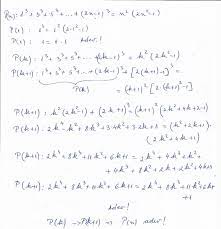 P(n): 1³+3³+5³+...+(2n-1)³ = n²(2n²-1)
P(1): 1³ = 1²(2·1²-1)
P(1): 1 = 1·1 adev.!
P(k): 1³+3³+5³+...+(2k-1)³ = k²(2k²-1)
P(k+1): 1³+3³+5³+...+(2k-1)³+[2(k+1)-1]³ =
P(k) = (k+1)²[2·(k+1)²-1]
P(k+1): k²(2k²-1)+(2k+1)³ = (k+1)²(2k²+4k+2-1)
P(k+1): 2k⁴-k²+8k³+3·4k²+3·2k+1 = (k²+2k+1)·
(2k²+4k+1)
P(k+1): 2k⁴+8k³+11k²+6k+1 = 2k⁴+4k³+k²+
+4k³+8k²+2k+2k²+4k+1
P(k+1): 2k⁴+8k³+11k²+6k+1 = 2k⁴+8k³+11k²+6k+
+1
adev!
P(k) → P(k+1) → P(n) adev!